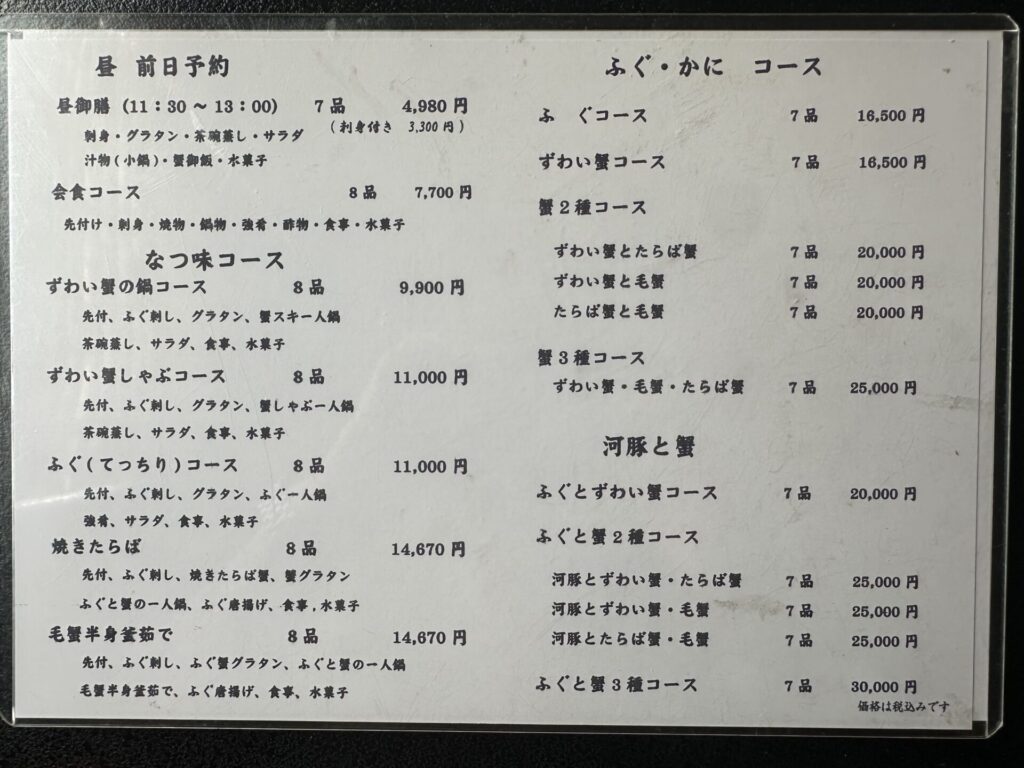 昼 前日予約
昼御膳 (11：30～13：00) 7品 4,980円
(刺身付き 3,300円)
刺身・グラタン・茶碗蒸し・サラダ
汁物(小鍋)・蟹御飯・水菓子
会食コース 8品 7,700円
先付け・刺身・焼物・鍋物・強肴・酢物・食事・水菓子
なつ味コース
ずわい蟹の鍋コース 8品 9,900円
先付、ふぐ刺し、グラタン、蟹スキ一人鍋
茶碗蒸し、サラダ、食事、水菓子
ずわい蟹しゃぶコース 8品 11,000円
先付、ふぐ刺し、グラタン、蟹しゃぶ一人鍋
茶碗蒸し、サラダ、食事、水菓子
ふぐ(てっちり)コース 8品 11,000円
先付、ふぐ刺し、グラタン、ふぐ一人鍋
強肴、サラダ、食事、水菓子
焼きたらば 8品 14,670円
先付、ふぐ刺し、焼きたらば蟹、蟹グラタン
ふぐと蟹の一人鍋、ふぐ唐揚げ、食事,水菓子
毛蟹半身釜茹で 8品 14,670円
先付、ふぐ刺し、ふぐ蟹グラタン、ふぐと蟹の一人鍋
毛蟹半身釜茹で、ふぐ唐揚げ、食事、水菓子
ふぐ・かに コース
ふ ぐコース 7品 16,500円
ずわい蟹コース 7品 16,500円
蟹2種コース
ずわい蟹とたらば蟹 7品 20,000円
ずわい蟹と毛蟹 7品 20,000円
たらば蟹と毛蟹 7品 20,000円
蟹3種コース
ずわい蟹・毛蟹・たらば蟹 7品 25,000円
河豚と蟹
ふぐとずわい蟹コース 7品 20,000円
ふぐと蟹2種コース
河豚とずわい蟹・たらば蟹 7品 25,000円
河豚とずわい蟹・毛蟹 7品 25,000円
河豚とたらば蟹・毛蟹 7品 25,000円
ふぐと蟹3種コース 7品 30,000円
価格は税込みです